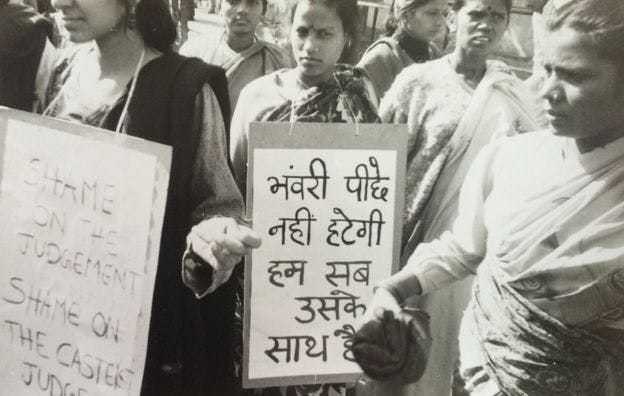 SHAME
ON THE
JUDGEMENT
SHAME ON
THE CASTEIST
JUDG
भंवरी पीछै
नहीं हटेगी
हम सब
उसके
साथ है